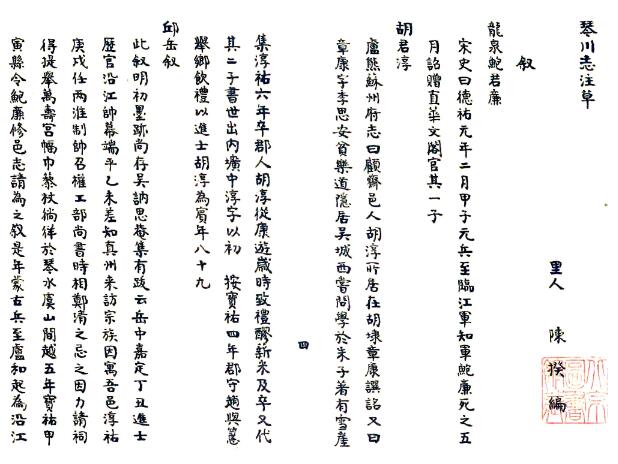 琴川志注草
里人 陳 揆 編
叙
龍泉鮑若廉
宋史曰德祐元年二月甲子元兵至臨江軍知軍鮑廉死之五
月詔贈直華文閣官其一子
胡君淳
盧熊蘇州府志曰顧齋邑人胡淳所居在胡埭章康譔誌又曰
章康字季思安貧樂道隱居吳城西嘗問學於朱子著有雪崖
集淳祐六年卒郡人胡淳從康遊歲時致禮醪新米及卒又代
其二子書世出内壙中淳字以初 按寶祐四年郡守趙與𥲅
舉鄉飲禮以進士胡淳為賓年八十九
邱岳叙
此叙明初墨跡尚存吳訥思菴集有跋云岳中嘉定丁丑進士
歷官沿江帥幕端平乙未差知真州来訪宗族因寓吾邑淳祐
庚戌任兩淮制帥召權工部尚書時相鄭清之忌之因力請祠
得提舉萬壽宮幅巾藜杖徜徉於琴水虞山間越五年寶祐甲
寅縣令鮑廉修邑志請為之叙是年蒙古兵至廬和起為沿江
四